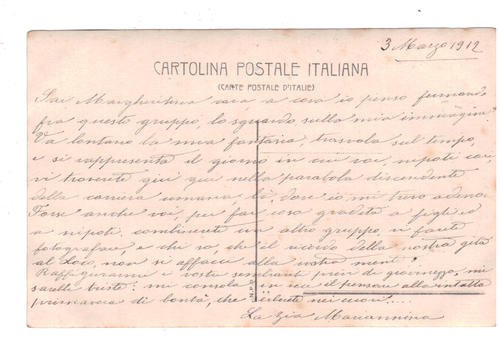 3 Marzo 1912
CARTOLINA POSTALE ITALIANA
(CARTE POSTALE D'ITALIE)
Sai Margheritina cara a cosa io penso fumando
fra questo gruppo, lo sguardo sulla mia immagine?
Va lontano la mia fantasia, trasvola sul tempo,
e si rappresenta il giorno in cui voi, nipoti cari,
vi troverete giù giù nella parabola discendente
della carriera umana, lì, dove io mi trovo adesso.
Forse anche voi, per far cosa gradita a figli ed
a nipoti, combinerete un altro gruppo, vi farete
fotografare e chi sa, che il ricordo della nostra gita
al non si affacci alla vostra mente!
Raffigurarmi i vostri sembianti privi di giovinezza, mi
sarebbe triste: mi consola in me il pensare alla intatta
primavera di bontà, che nei cuori....
La zia Mariannina